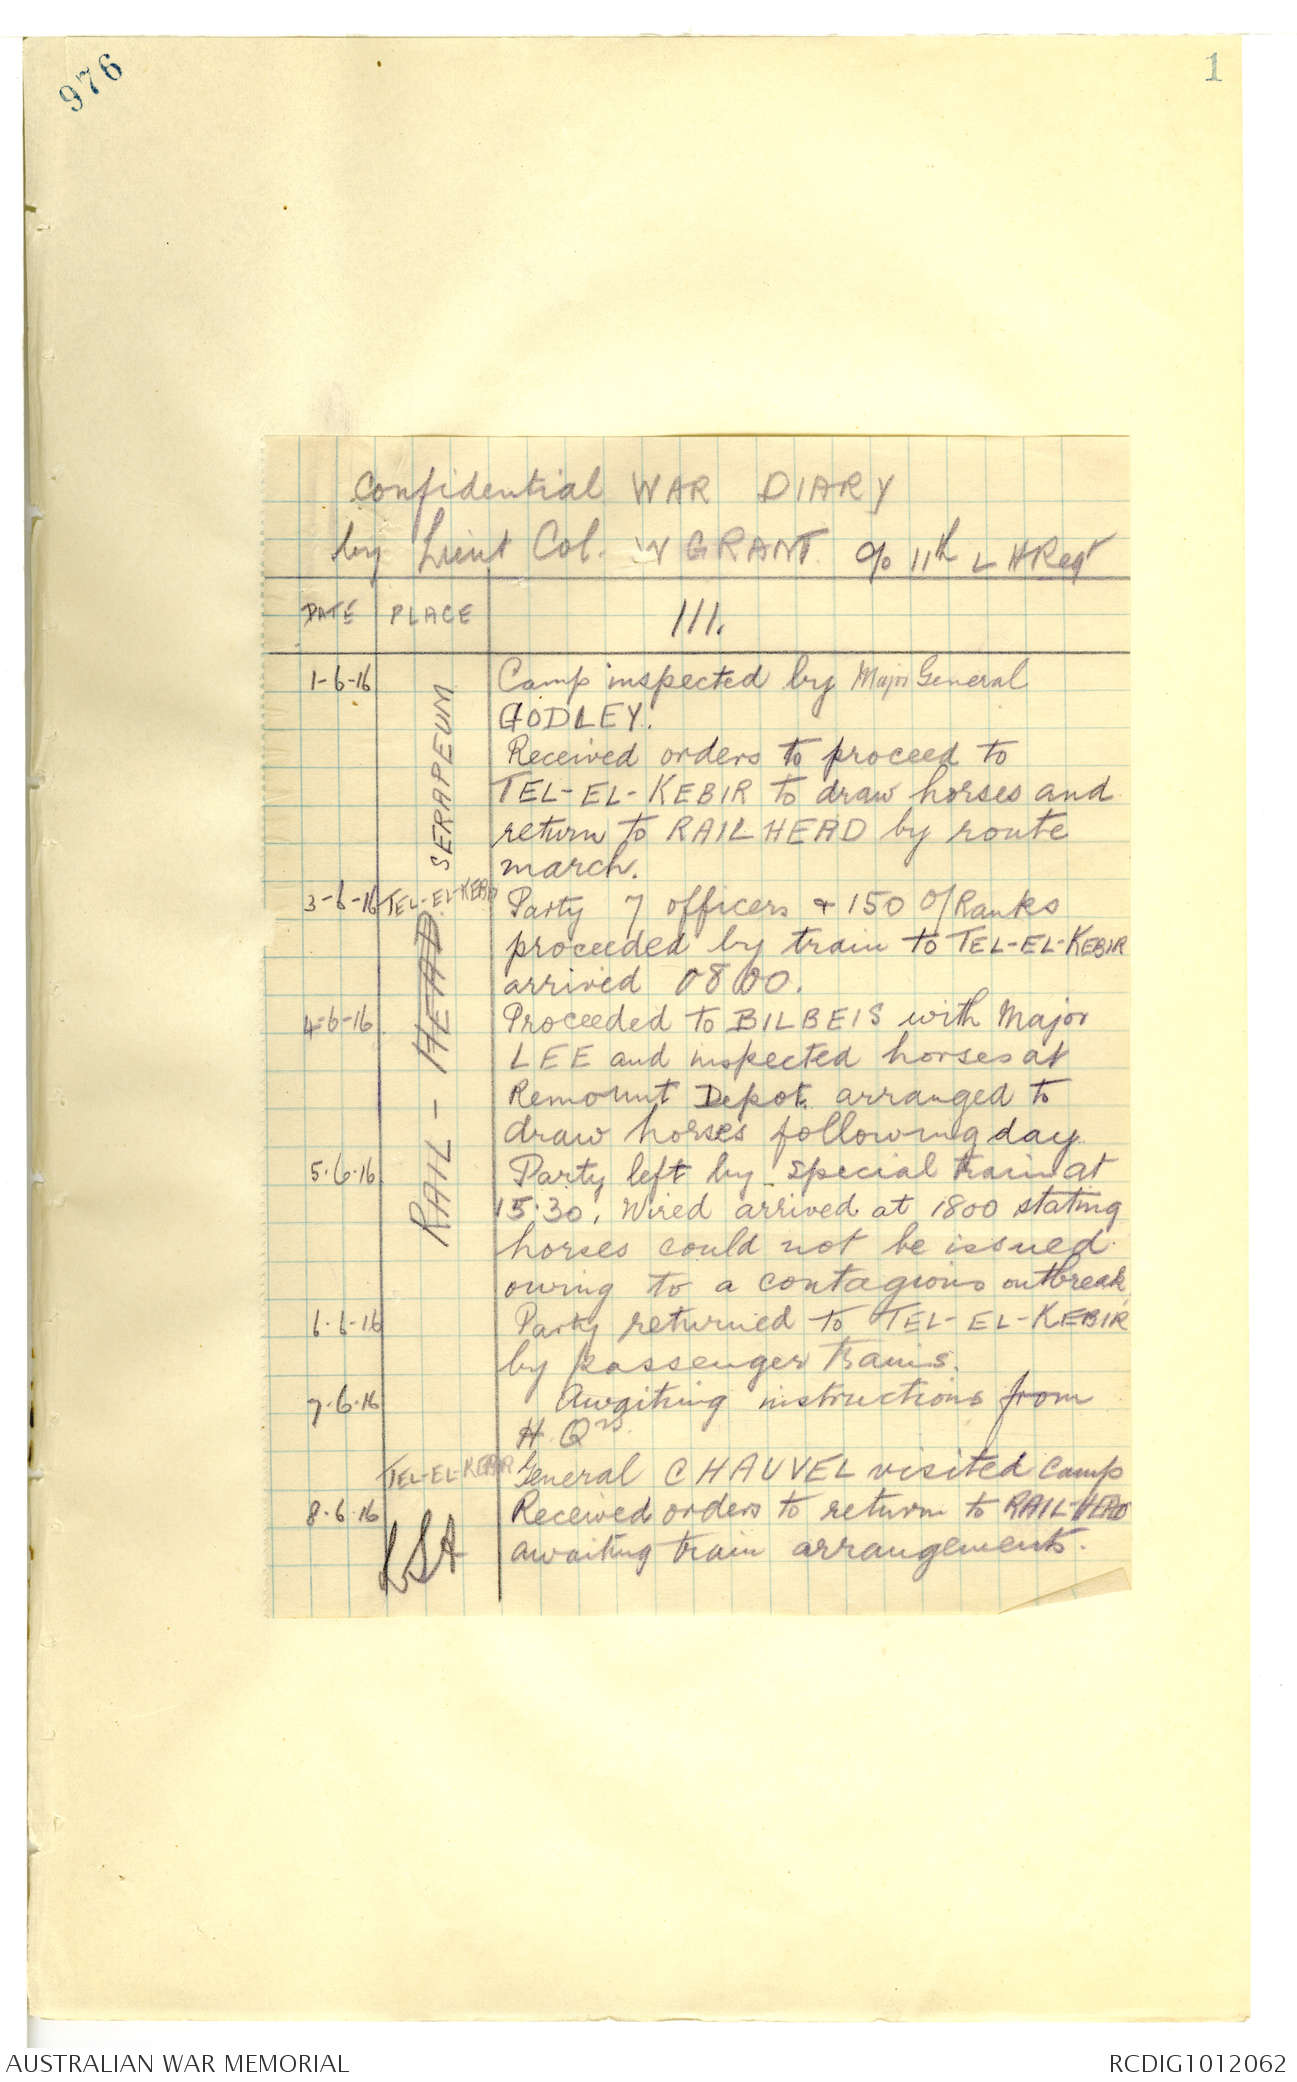 976
1
Confidential WAR DIARY
by Lieut Col. W GRANT c/o 11th L H Regt
DATE PLACE 111.
1-6-16 SERAPEUM Camp inspected by Major General
GODLEY.
Received orders to proceed to
TEL-EL-KEBIR to draw horses and
return to RAILHEAD by route
march.
3-6-16 TEL-EL-KEBIR Party 7 officers & 150 O/Ranks
proceeded by train to TEL-EL-KEBIR
arrived 0800.
4-6-16 RAIL-HEAD Proceeded to BILBEIS with Major
LEE and inspected horses at
Remount Depot. arranged to
draw horses following day.
5.6.16 Party left by special train at
15.30. Wired arrived at 1800 stating
horses could not be issued
owing to a contagious outbreak
6.6.16 Party returned to TEL-EL-KEBIR
by passenger trains.
7.6.16 Awaiting instructions from
H. Qrs.
TEL-EL-KEBIR General CHAUVEL visited Camp
8.6.16 Received orders to return to RAIL-HEAD
awaiting train arrangements.
AUSTRALIAN WAR MEMORIAL
RCDIG1012062